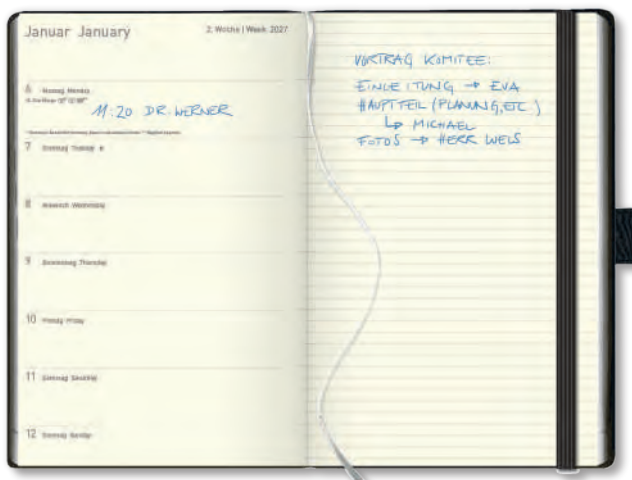 Januar January
2. Woche | Week 2027
6 Montag Monday
11:20 DR. WERNER
7 Dienstag Tuesday
8 Mittwoch Wednesday
9 Donnerstag Thursday
10 Freitag Friday
11 Samstag Saturday
12 Sonntag Sunday
VORTRAG KOMITEE:
EINLEITUNG → EVA
HAUPTTEIL (PLANUNG, ETC.)
↳ MICHAEL
FOTOS → HERR WEIS